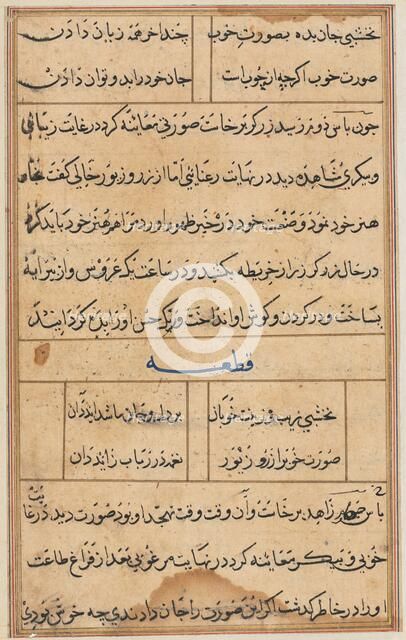 نخشبی جان بده بصورت خوب چند اخر همه زیان دادن
صورت خوب اکرچه از چوب است جان خود را بدو توان دادن
چون پاس دوم رسید زرکر برخاست صورتی معاینه کرد در غایت زیبائی
و پیکری مشاهده دید در نهایت رعنائی اما از زر و زیور خالی کفت نجار
هنر خود نمود و صنعت خود در حیز ظهور اورد مرا هم هنر خود باید کرد
در حال زرکر زر از خریطه بکشید و در ساعت یک عروس وار پیرایه
بساخت و در کردن و کوش او انداخت و حسن او کردانید
قطعــه
نخشبی زیب و زینت خوبان بر دل و جان ما شداید دان
صورت خوب را زر و زیور نغمه در رباب زاید دان
پاس زاهد برخاست و آن وقت وقت تهجد او بود صورت دید در غایت
خوبی و پیکر معاینه کرد در نهایت مرغوبی بعد از فراغ طاعت
او را در خاطر کذشت اکر این صورت را جان دادندی چه خوش بودی